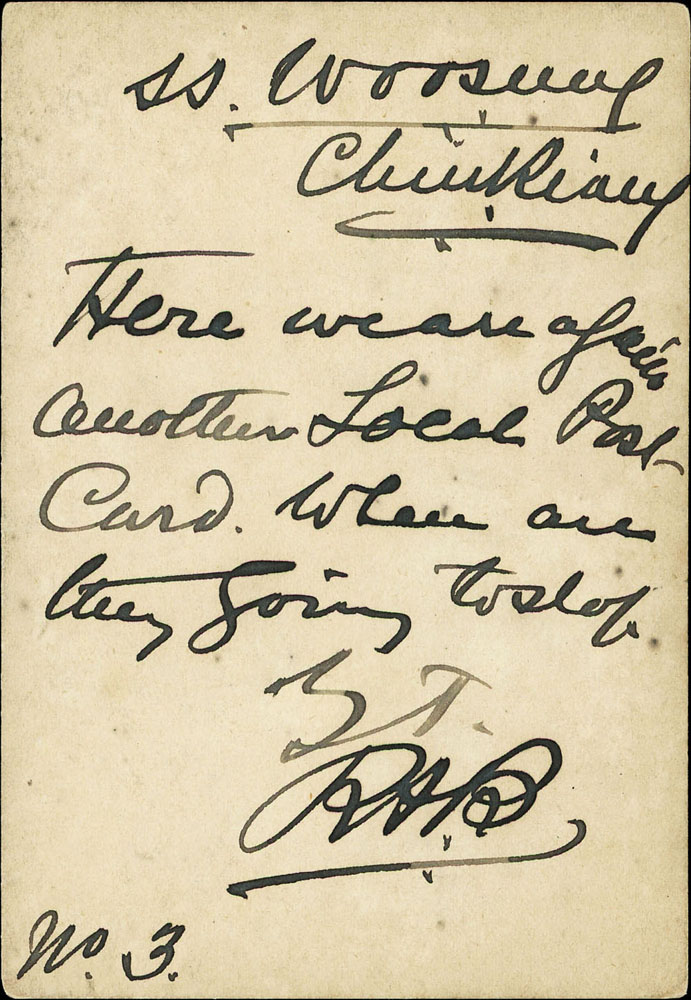 SS. Woosung
Chinkiang
Here we are again
another Local Post
Card. When are
they going to stop.
Y T.
RAB
No. 3.